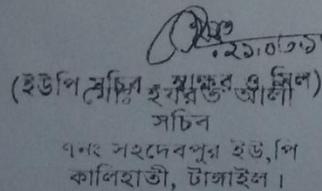 (ইউপি সচিব স্বাক্ষর ও সিল)
মোঃ হযরত আলী
সচিব
৭নং সহদেবপুর ইউ,পি
কালিহাতী, টাঙ্গাইল।